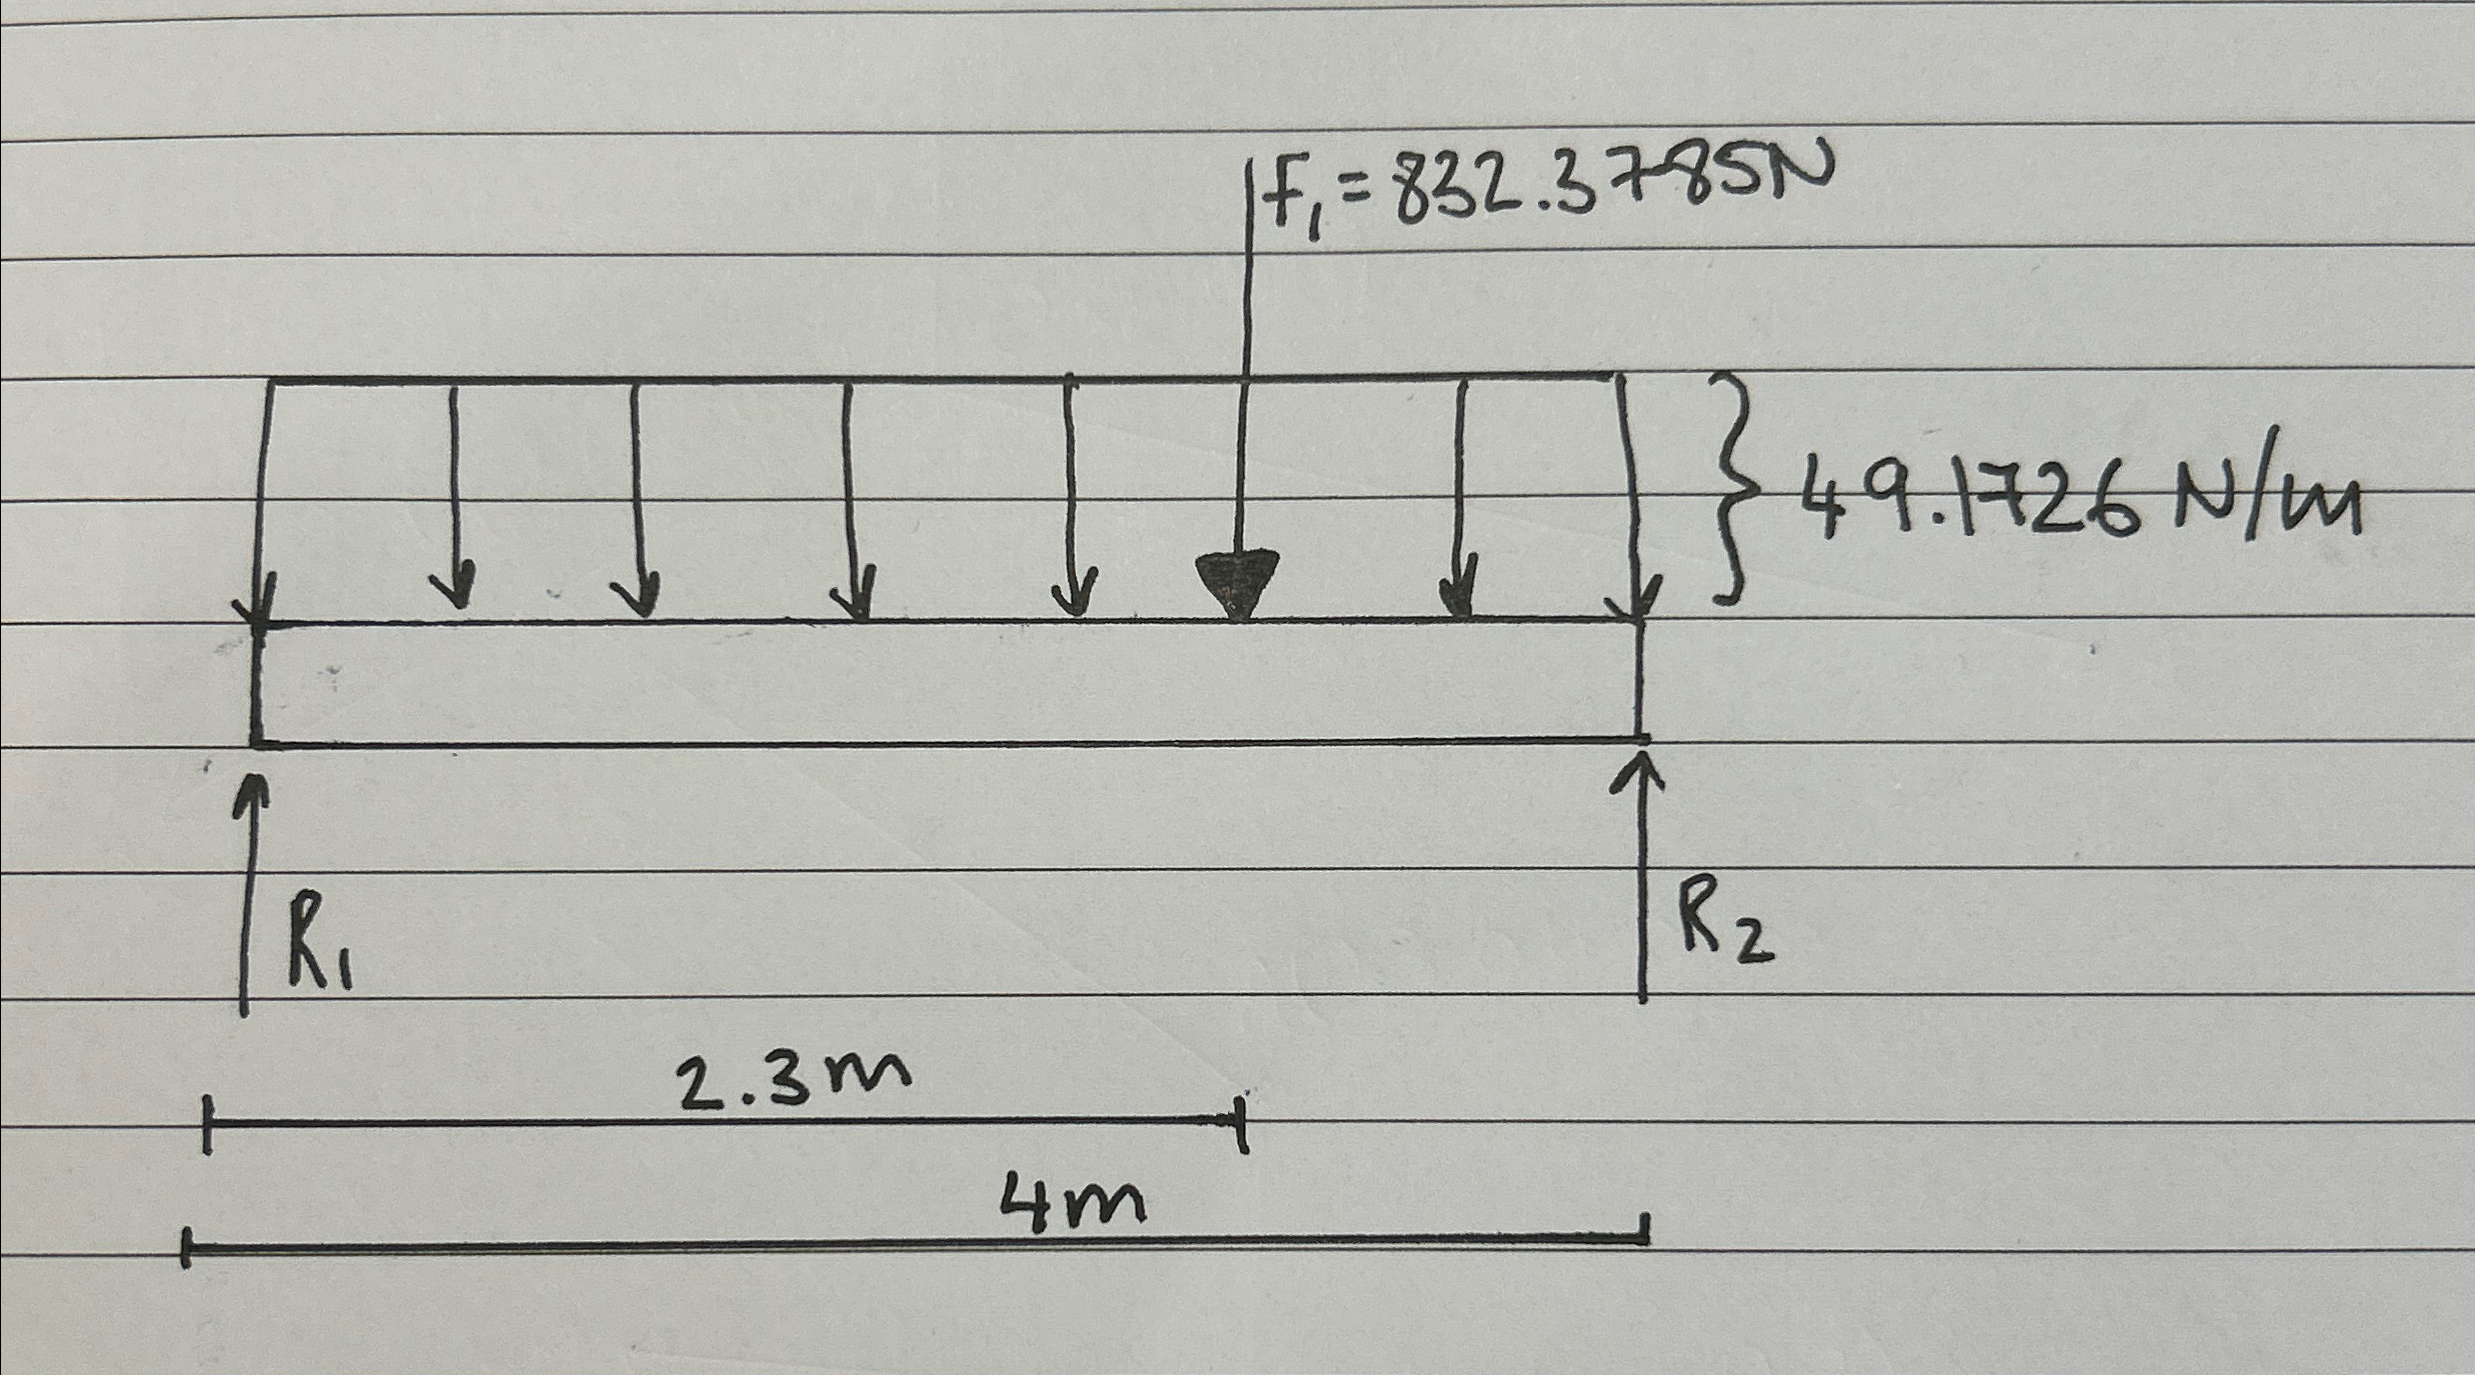 F₁ = 832.3785N
49.1726 N/m
R₁
R₂
2.3m
4m